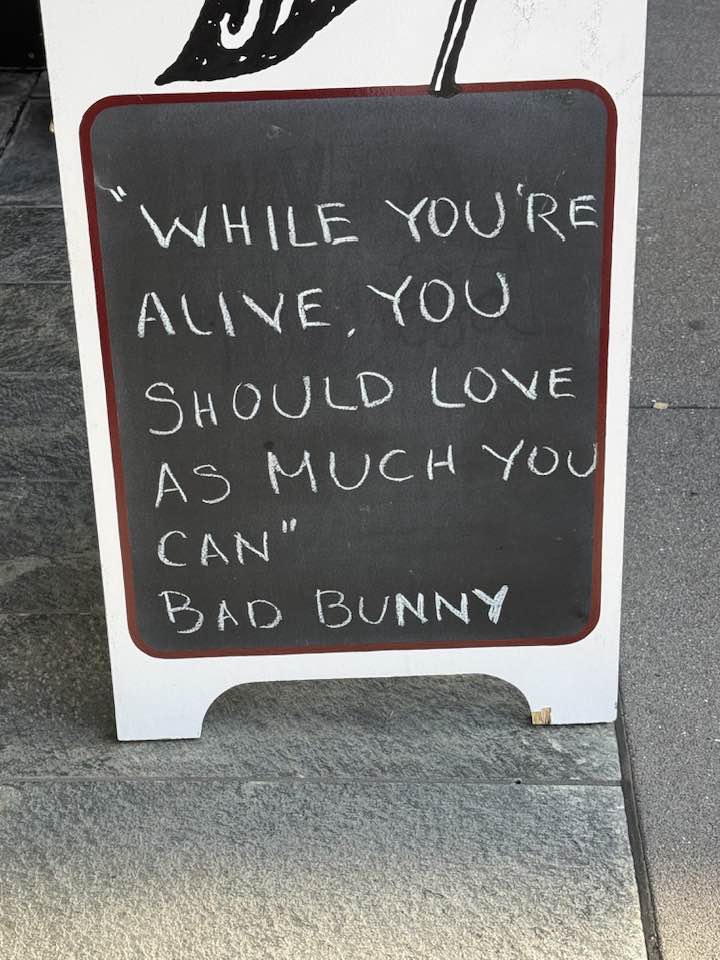 "WHILE YOU'RE
ALIVE, YOU
SHOULD LOVE
AS MUCH YOU
CAN"
BAD BUNNY